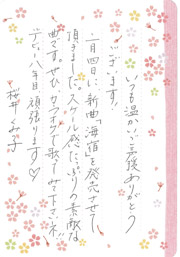 いつも温かいご声援ありがとう
ございます!
二月四日に新曲「海宿」を発売させて
頂きました。スケール感たっぷりの素敵な
曲です。ぜひカラオケで歌って下さいネ!!
デビュー八年目頑張ります♡
桜井くみ子